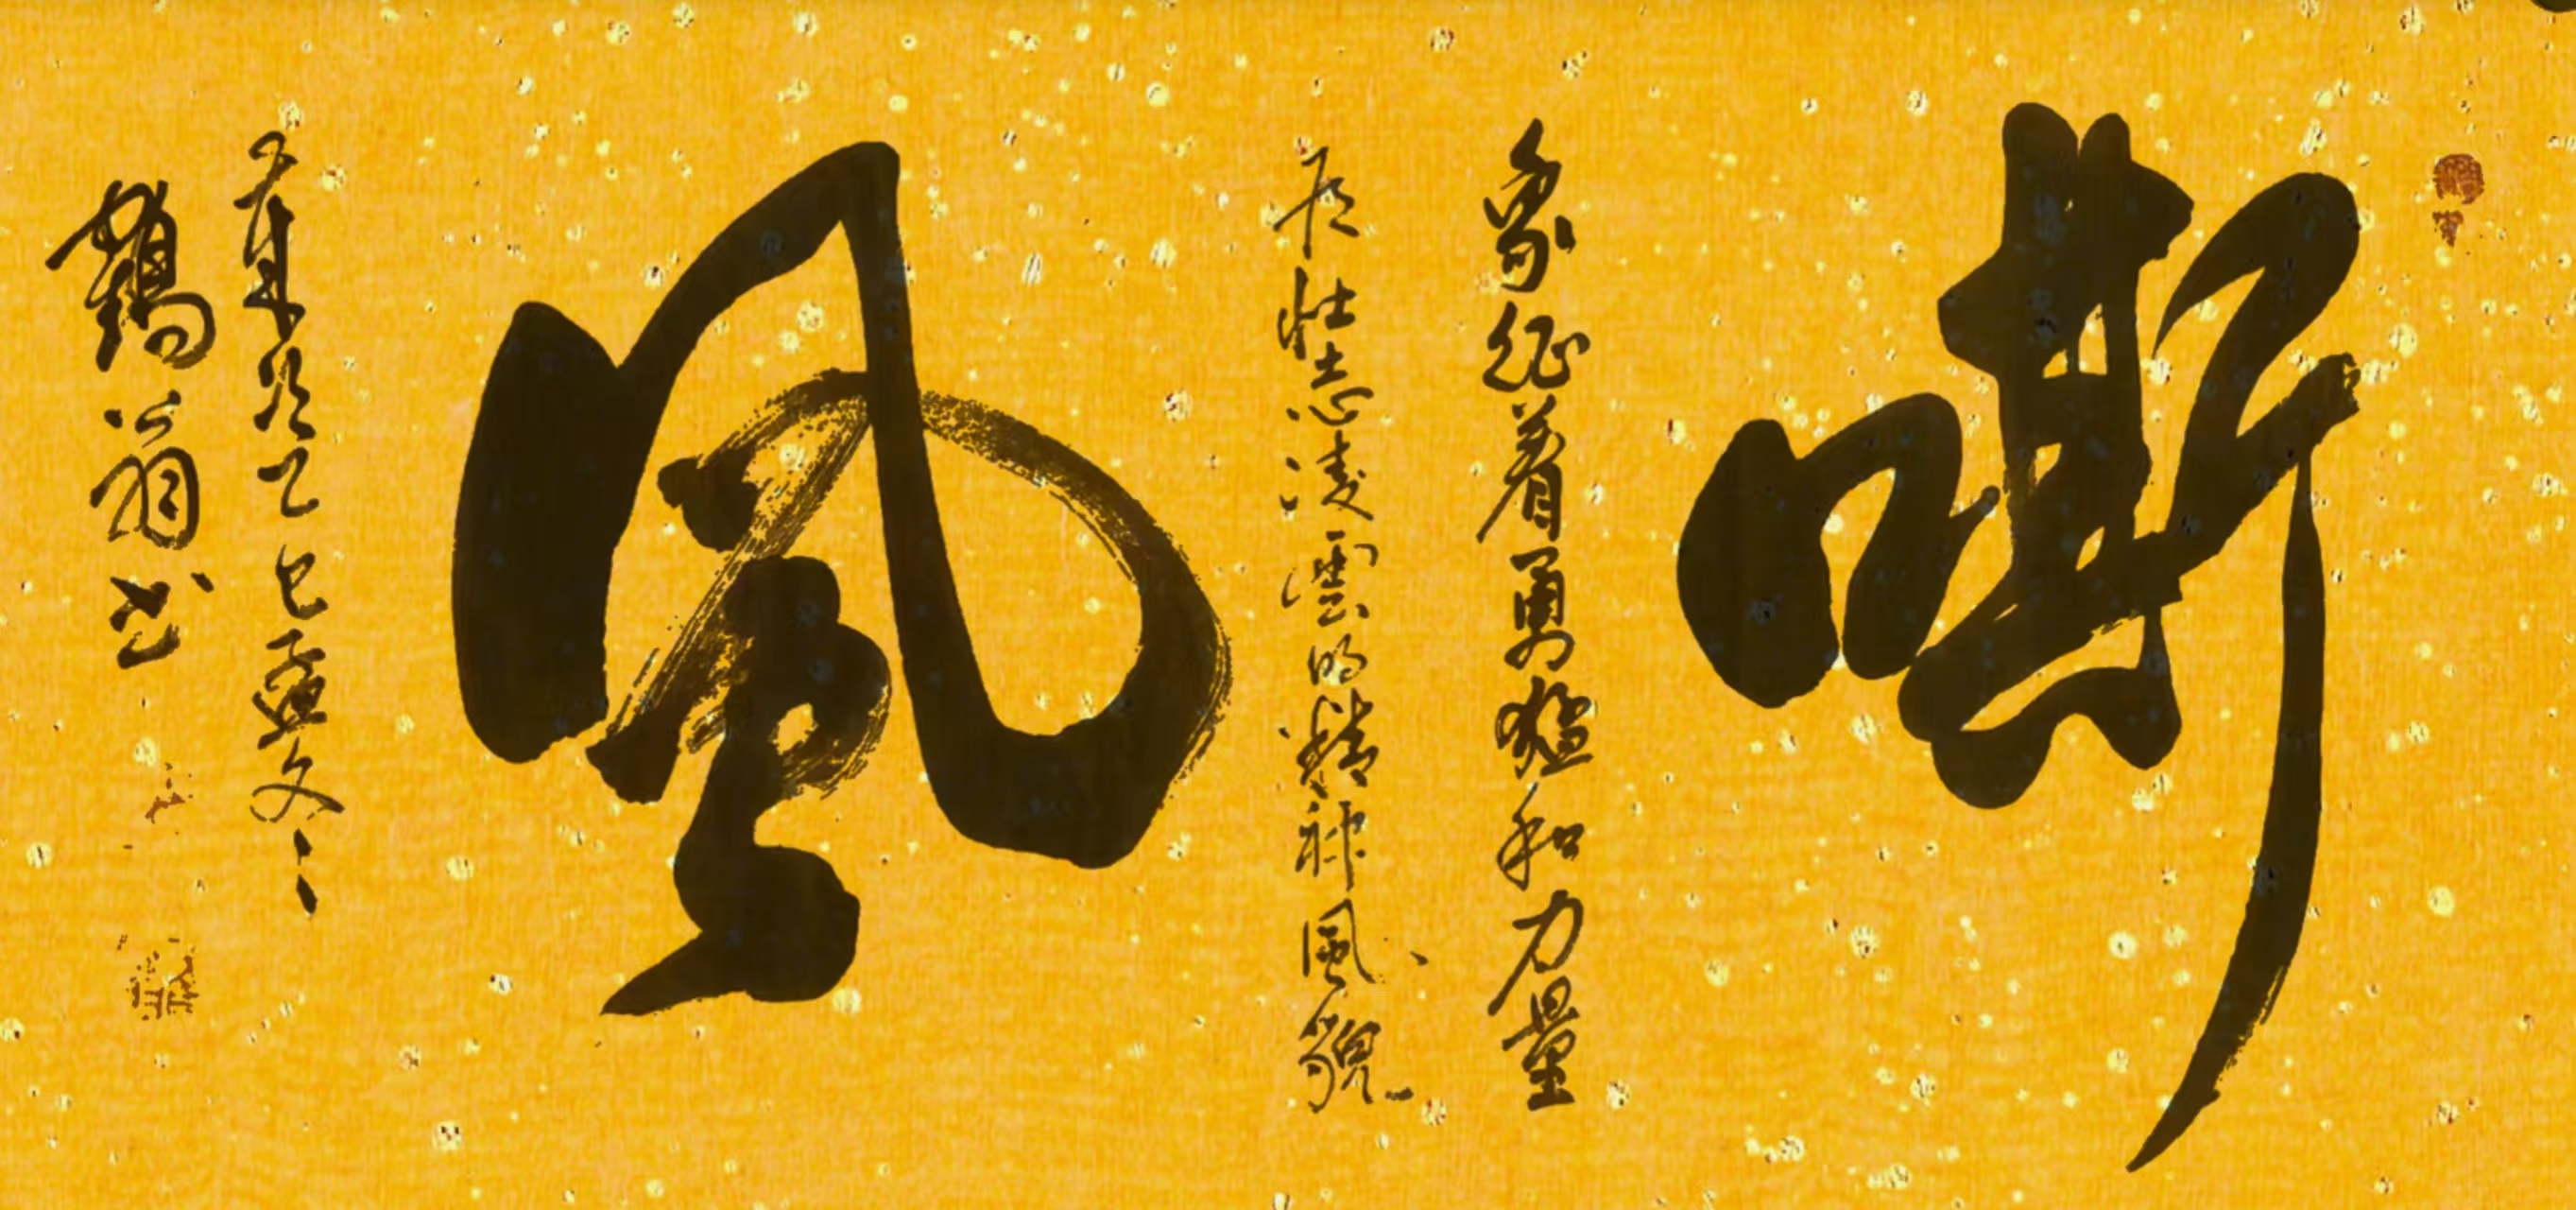 嘶
象征着勇猛和力量
及壮志凌雲的精神風貌
風
歲次乙巳孟夂
鶴翁书